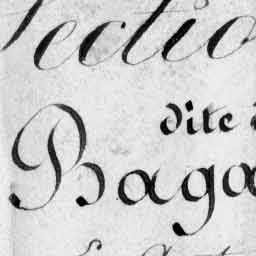 Section
dite
Baga